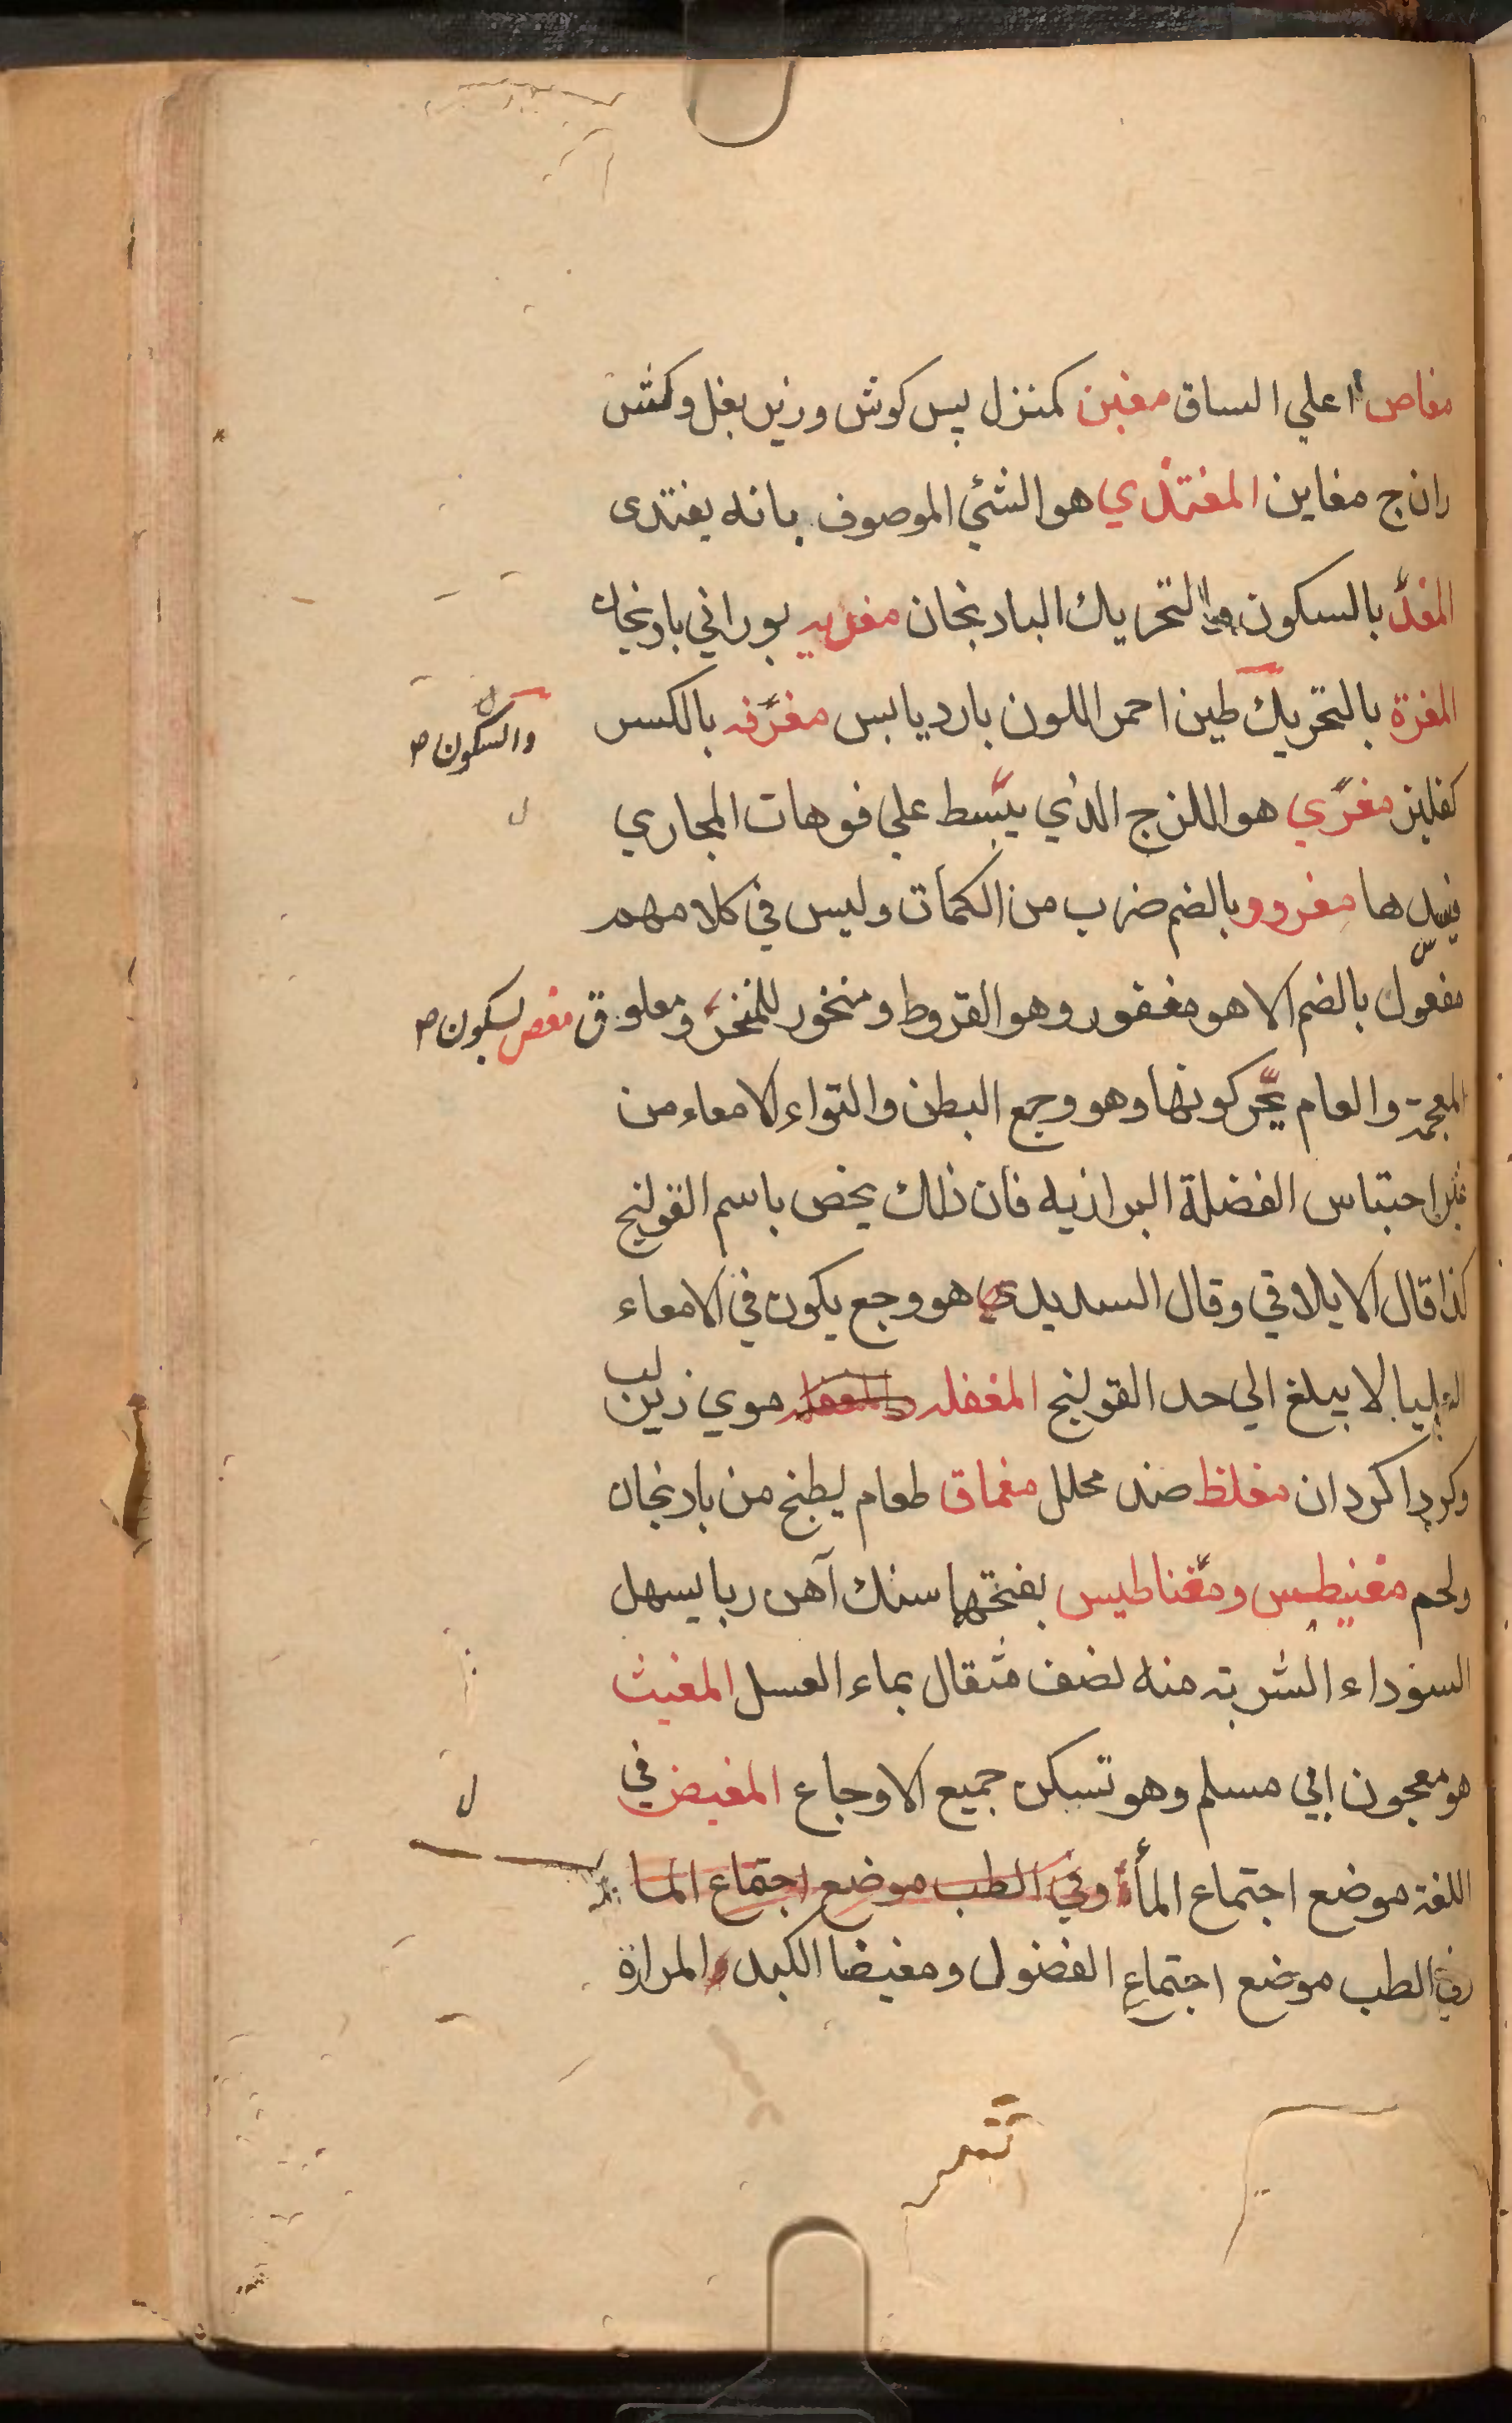 مغاص اعلي الساق مغبن كمنزل پس كوش وزير بغل وكش
ران ج مغابن المغتذي هو الشئي الموصوف بانه يغتدى
المغدّ بالسكون والتحريك البادنجان مغديه بوراني بادنجان
المغرة بالتحريك طين احمر اللون بارد يابس مغرفه بالكسر
والسكون صح
كفليز مغرّي هو اللزج الذي يبسط علي فوهات المجاري
فيسدها مغرود بالضم ضرب من الكمات وليس في كلامهم
مفعول بالضم الا هو مغفور وهو القروط ومنخور للمنخر ومعلوق مغص بسكون
المعجمة والعام يحركونها وهو وجع البطن والتواء الامعاء من
غير احتباس الفضلة البرازيه فان ذلك يخص باسم القولنج
كذا قال الايلاقي وقال السديدي هو وجع يكون في الامعاء
العليا لا يبلغ الي حد القولنج المغفله والمغفله موي زير لب
وكرداكردان مغلظ ضد محلل مغماق طعام يطبخ من بادنجان
ولحم مغنيطس ومغناطيس بفتحها سنك آهن ربا يسهل
السوداء الشربة منه نصف مثقال بماء العسل المغيث
هو معجون ابي مسلم وهو تسكن جميع الاوجاع المغيض في
اللغة موضع اجتماع الماء وفي الطب موضع اجتماع الما
وفي الطب موضع اجتماع الفضول ومغيضا الكبد المرارة